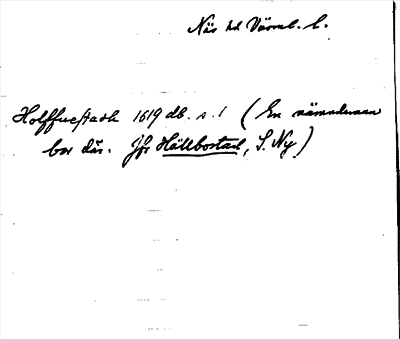 Näs hd Värml. l.
Holffuestadh 1619 db. s. 1 (En nämndeman
bor där. Jfr Hällbostad, S. Ny)